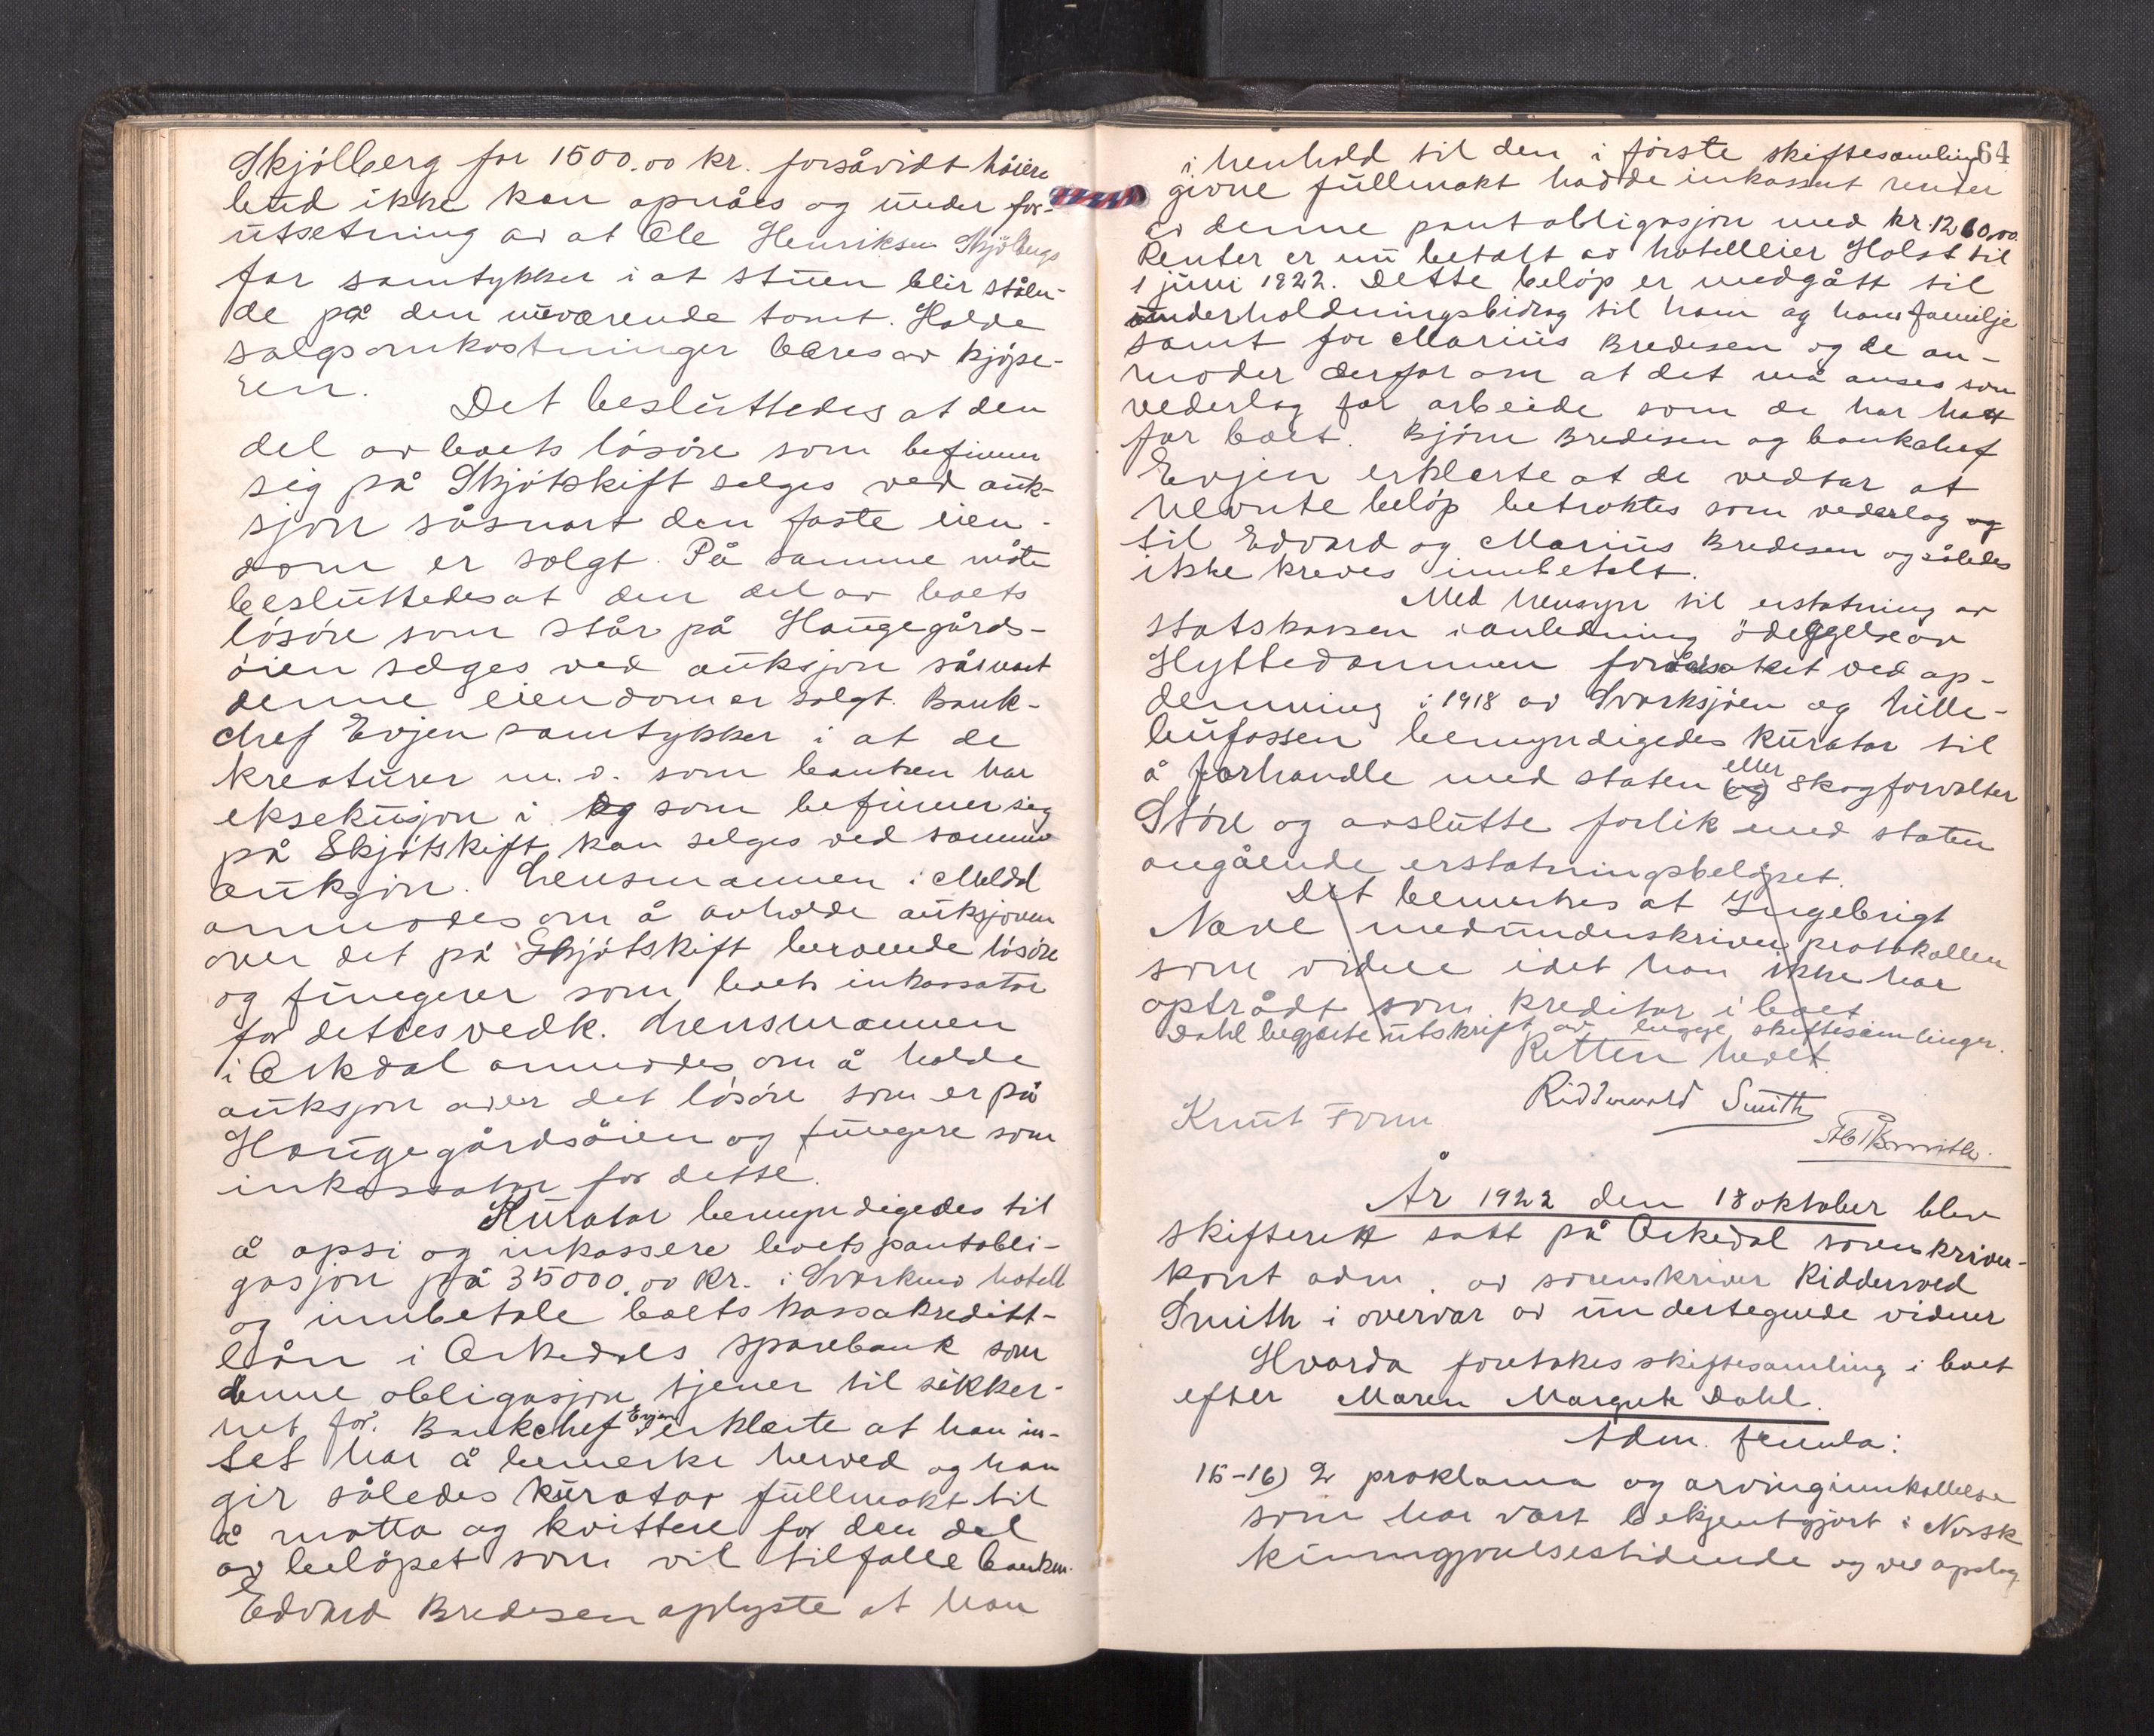 Skjölberg for 1500.00 kr. forsåvidt höiere
bud ikke kan opnåes og under for-
utsetning av at Ole Henriksen Skjölbergs
far samtykker i at stuen blir ståen-
de på den nuværende tomt. Halde
salgsomkostninger bæres av kjöpe-
ren.
Det besluttedes at den
del av boets lösöre som befinner
sig på Skjötskift selges ved auk-
sjon såsnart den faste eien-
dom er solgt. På samme måte
besluttedes at den del av boets
lösöre som står på Haugegårds-
öien selges ved auksjon såsnart
denne eiendom er solgt. Bank-
chef Evjen samtykker i at de
kreaturer m.v. som banken har
eksekusjon i og som befinner sig
på Skjötskift kan selges ved samme
auksjon. Lensmannen i Meldal
anmodes om å avholde auksjonen
over det på Skjötskift beroende lösöre
og fungerer som boets inkassator
for dettes vedk. Lensmannen
i Orkdal anmodes om å holde
auksjon over det lösöre som er på
Haugegårdsöien og fungere som
inkassator for dette.
Kurator bemyndigedes til
å opsi og inkassere boets pantobli-
gasjon på 35000.00 kr. i Svorkmo hotell
og innbetale boets kassakreditt-
lån i Orkedals sparebank som
denne obligasjon tjener til sikker-
het for. Bankchef Evjen erklærte at han in-
tet har å bemerke herved og han
gir således kurator fullmakt til
å motta og kvittere for den del
av belöpet som vil tilfalle banken.
Edvard Bredesen oplyste at han
64
i henhold til den i förste skiftesamling
givne fullmakt hadde inkassert renter
av denne pantobligasjon med kr. 1260,00.
Renter er nu betalt av hotelleier Holst til
1 juni 1922. Dette belöp er medgått til
underholdningsbidrag til ham og hans familje
samt for Marius Bredesen og de an-
moder derfor om at det må anses som
vederlag for arbeide som de har hatt
for boet. Björn Bredesen og bankchef
Evjen erklærte at de vedtar at
nevnte belöp betraktes som vederlag og
til Edvard og Marius Bredesen og således
ikke kreves innbetalt.
Med hensyn til erstatning av
statskassen i anledning ödeggelse av
Hyttedammen forårsaket ved op-
demning i 1918 av Svorksjöen og hille-
bufossen bemyndigedes kurator til
å forhandle med staten og eller Skogforvalter
Stören og avslutte forlik med staten
angående erstatningsbelöpet.
Det bemerkes at Ingebrigt
Næve medunderskriver protokollen
som vidne idet han ikke har
optrådt som kreditor i boet
Dahl begjærte utskrift av begge skiftesamlinger.
Retten hevet.
Ridderwold Smith
Knut Form
År 1922 den 18 oktober blev
skifterett satt på Orkedal sorenskriver-
kont adm. av sorenskriver Ridderwold
Smith i overvær av undertegnede vidner
Hvorda foretokes skiftesamling i boet
efter Maren Margrete Dahl.
Adm. fremla:
15-16) 2 proklama og arvinginnkallelse
som har vært bekjentgjort i Norsk
kunngjörelsestidende og ved opslag